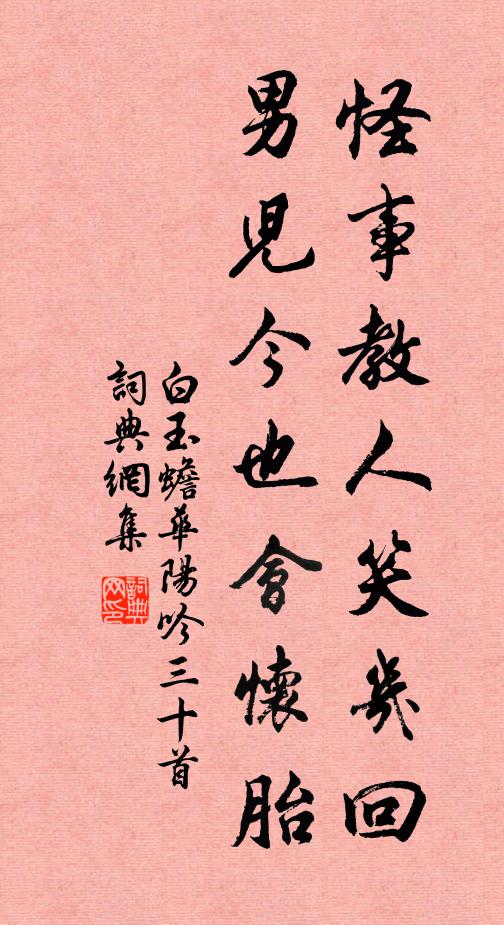 怪事教人笑幾回
男兒今也會懷胎
白玉蟾華陽吟三十首
詞典網集
詞典網印